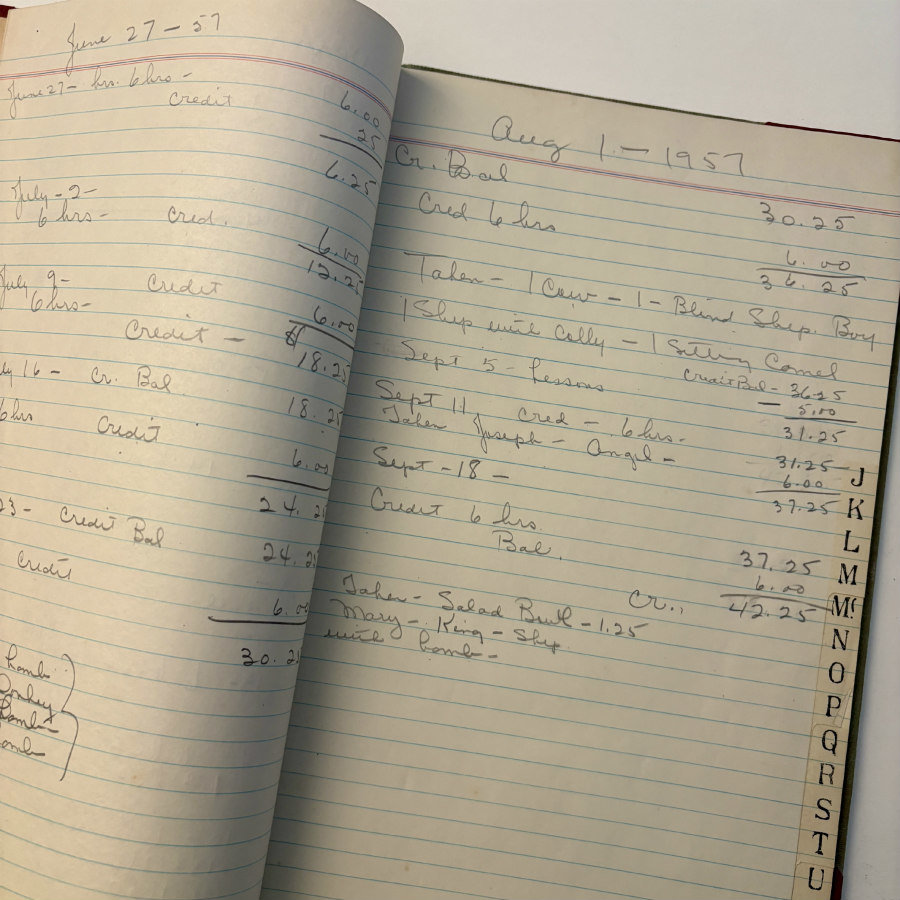 June 27 - 57
June 27 - hrs. 6 hrs -
Credit 6.00
25
6.25
July - 2 -
6 hrs - Cred. 6.00
12.25
July 9 - Credit
6 hrs - 6.00
Credit - 18.25
ly 16 - Cr. Bal. 18.25
6 hrs Credit
6.00
24.2
23 - Credit Bal 24.2
Credit 6.00
30.2
Lamb
Donkey
Lamb
amb
Aug 1 - 1957
Cr. Bal 30.25
Cred 6 hrs 6.00
36.25
Taken - 1 Cow - 1 - Blind Shep. Boy
1 Shep with Colly - 1 Sitting Camel
Credit Bal - 36.25
Sept 5 - Lessons - 5.00
31.25
Sept 11, Cred - 6 hrs - 31.25
Taken Joseph - Angel - 6.00
37.25
Sept - 18 -
Credit 6 hrs. 37.25
Bal. 6.00
Cr.. 42.25
Taken - Salad Bowl - 1.25
Mary - King - Shep
with Lamb -
J
K
L
M
Mc
N
O
P
Q
R
S
T
U